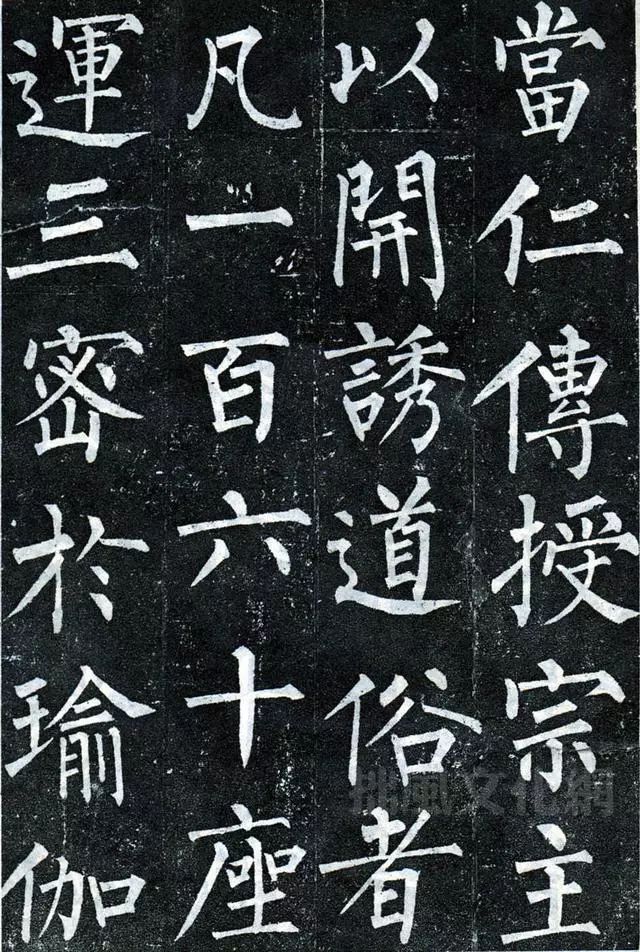 當仁傳授宗主
以開誘道俗者
凡一百六十座
運三密於瑜伽
拙風文化網